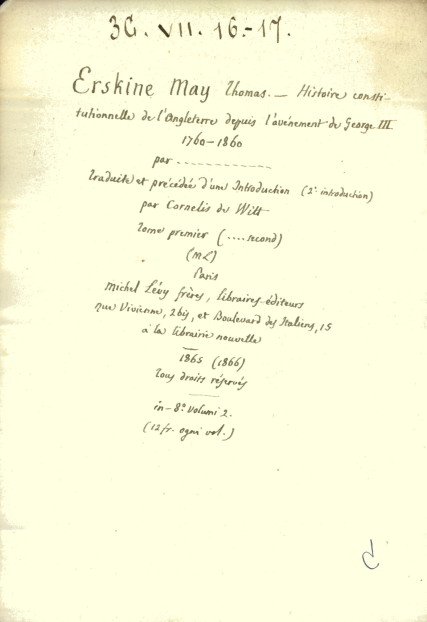 3G. VII. 16.-17.
Erskine May Thomas. — Histoire consti-
tutionnelle de l'Angleterre depuis l'avénement de George III
1760-1860
par ..............
Traduite et précédée d'une Introduction (2e introduction)
par Cornelis de Witt
Tome premier (....second)
(ML)
Paris
Michel Lévy frères, libraires-éditeurs
rue Vivienne, 2 bis, et Boulevard des Italiens, 15
à la librairie nouvelle
1865 (1866)
Tous droits réservés
in-8° volumi 2.
(12 fr. ogni vol.)